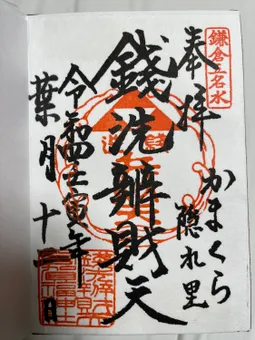 鎌倉五名水
奉拝
かまくら
隠れ里
銭洗辧財天
令和四壬寅年
葉月十一日